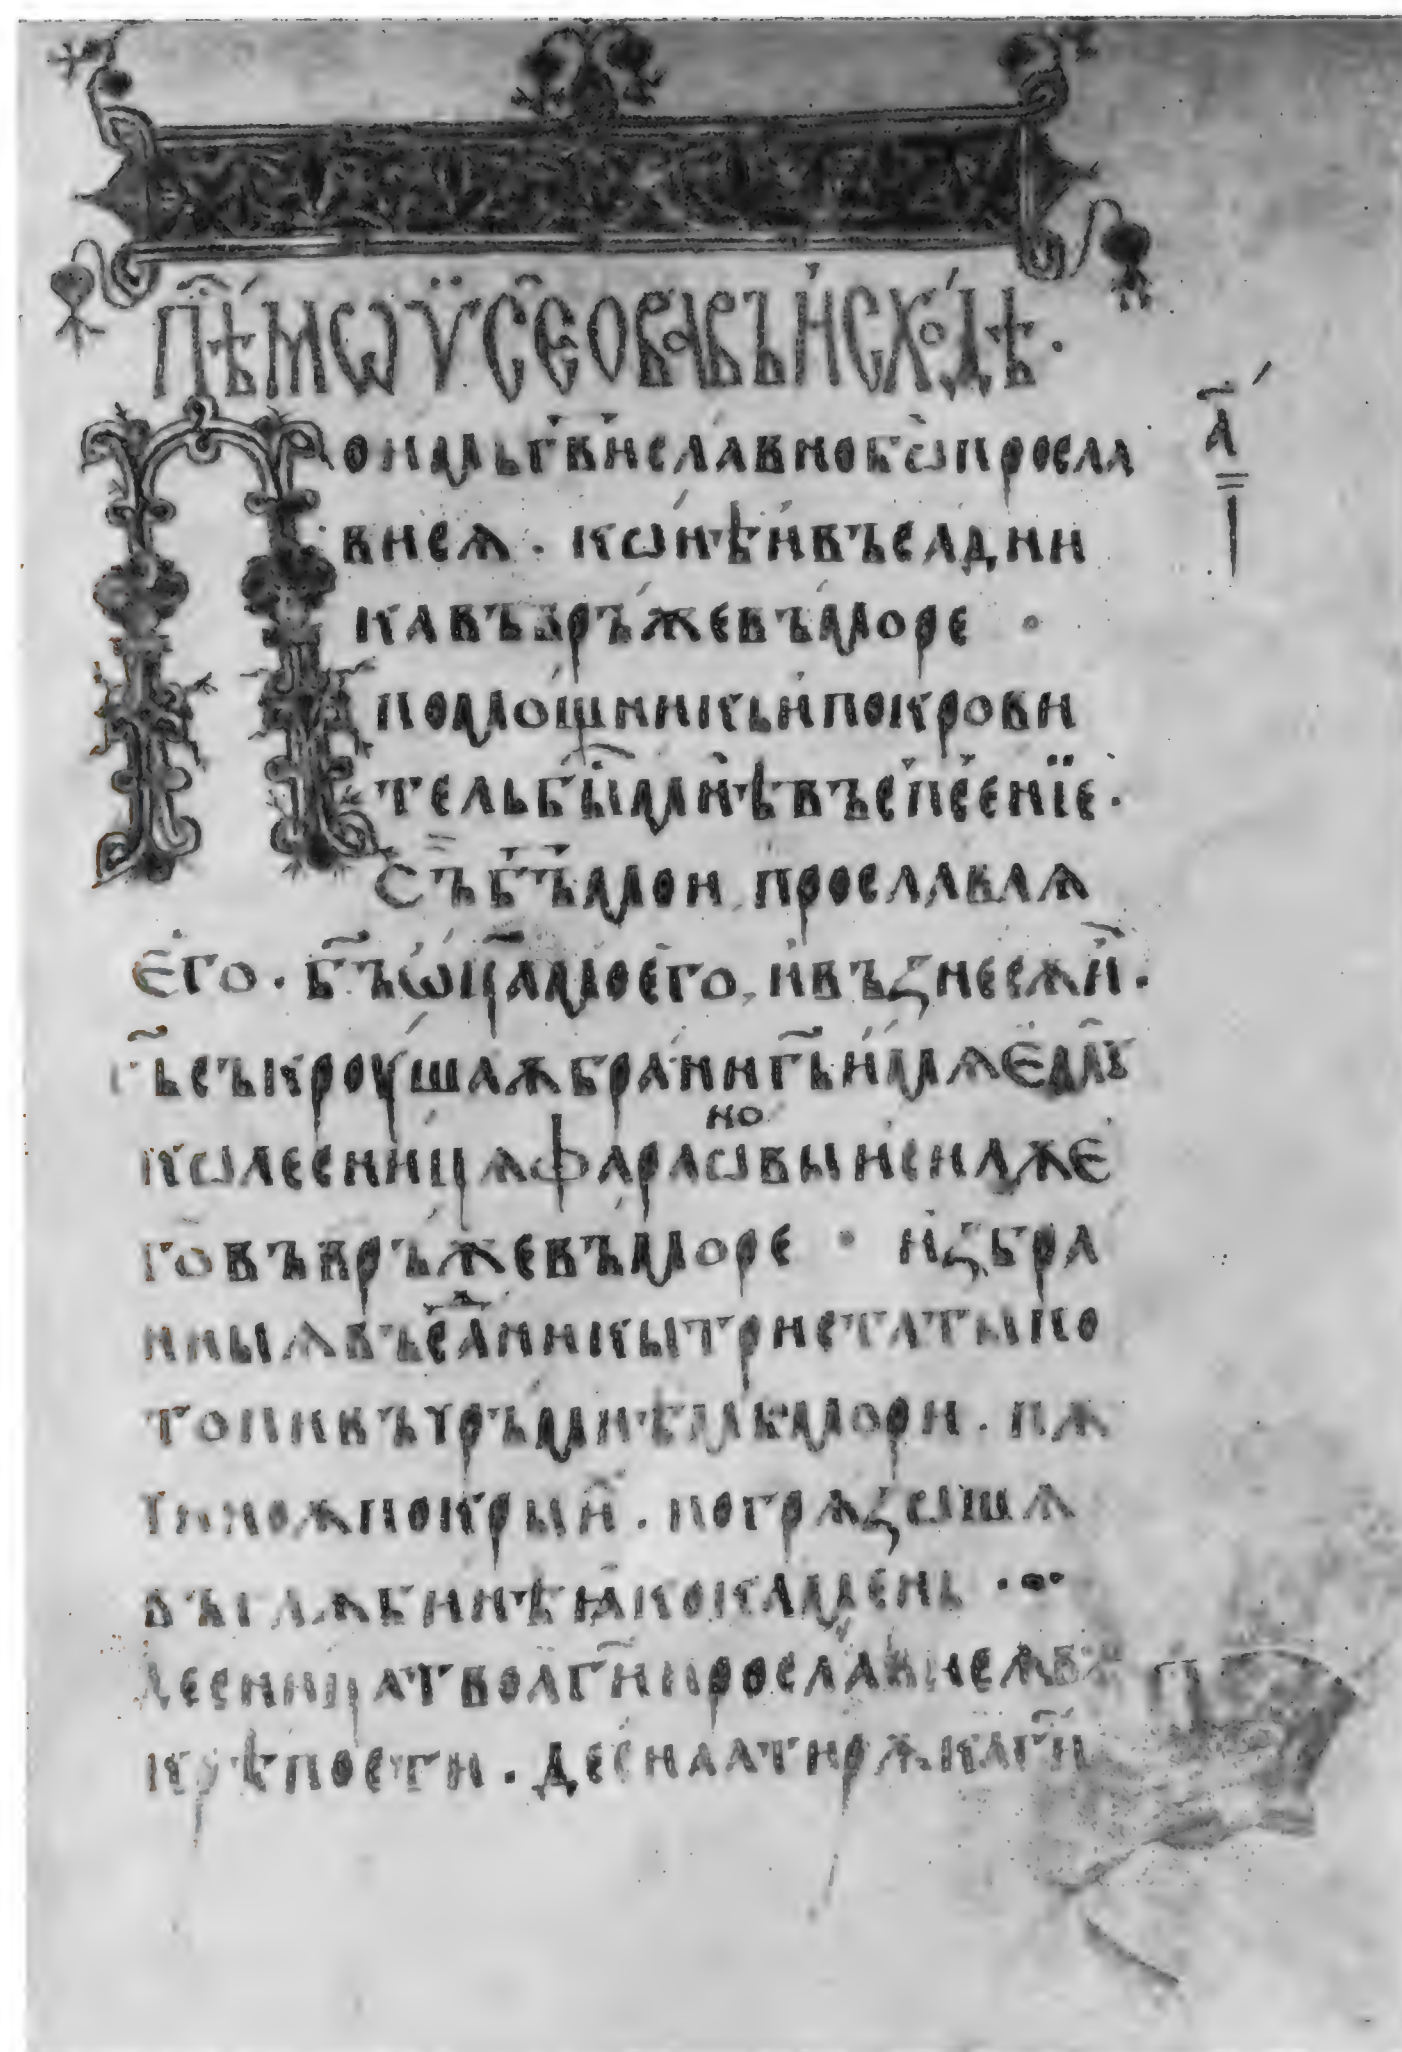 пѣ́ мѡѷсе́ова въ и҆схо́дѣ ·
а҃
Поимь гв҃и славно бѡ просла
висѧ · кѡ́нѣ и҆ въсадни
ка въврь́же въ море ·
помо́щникь и҆ покрови
тель бы҆ мнѣ въ сп҃сенїе ·
Съ бъ҃ мои прославлѧ
е҆го · бъ҃ ѿц҃а моего, и҆ възнесѫ и҆ ·
гь҃ съкроушаѫ бра́ни гь҃ и҆мѧ е҆мꙋ
кѡлесни́цѧ фараѡновы и҆ силѫ е҆
го въврь́же въ море · и҆збра
нныѧ въсадникы тристаты по
топи въ чръмнѣмь мори · пѫ
чиноѫ покры и҆ · погрѧзѡшѧ
въ глѫбинѣ ꙗ҆ко камень ·
десница твоа ги҃ прослависѧ въ
крѣпости · деснаа ти рѫка ги҃